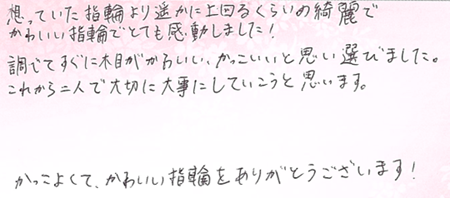 想っていた指輪より遥かに上回るくらいの綺麗で
かわいい指輪でとても感動しました！
調じてすぐに木目がかわいい、かっこいいと思い選びました。
これから二人で大切に大事にしていこうと思います。
かっこよくて、かわいい指輪をありがとうございます！